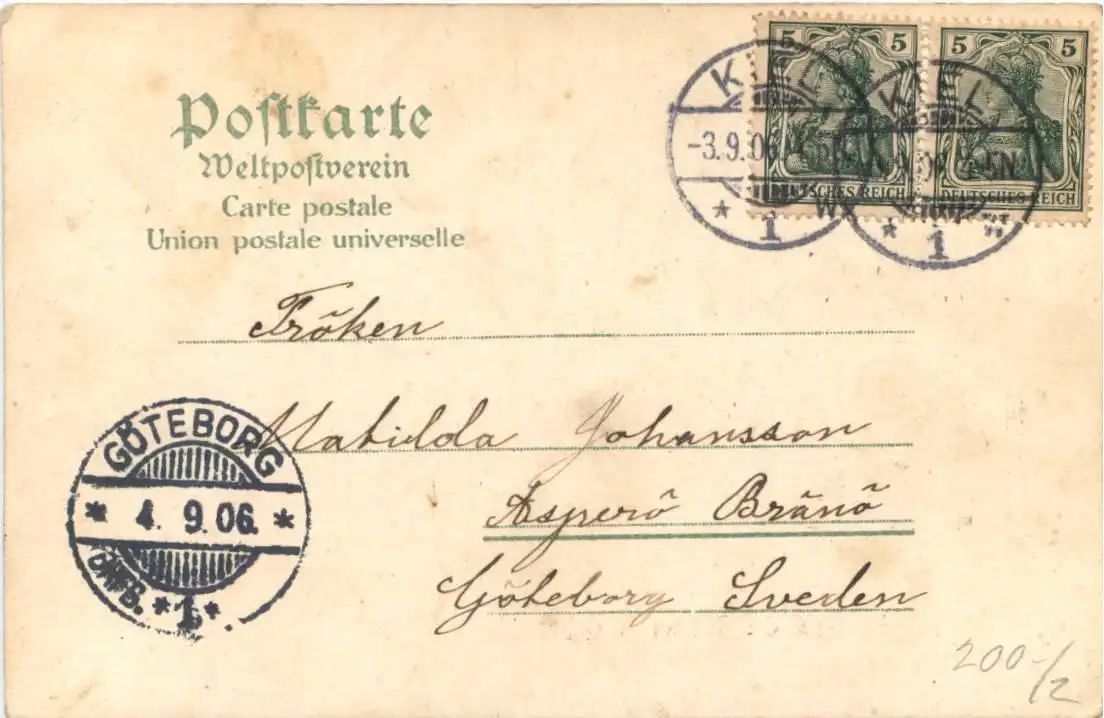 Postkarte
Weltpostverein
Carte postale
Union postale universelle
5 5
DEUTSCHES REICH
5 5
DEUTSCHES REICH
KIEL
-3.9.06
* 1 W
KIEL
N
* 1 *
Fröken
Matilda Johansson
Asperö Brännö
Göteborg Sveden
GÖTEBORG
* 4. 9. 06. *
* 1 *
200-/2